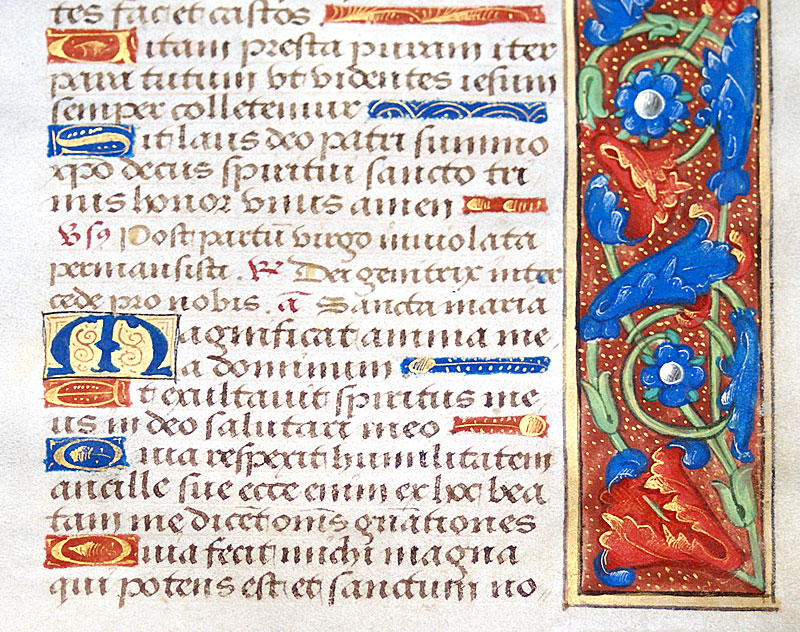 tes fac et castos
Vitam presta puram iter
para tutum vt videntes iesum
semper colletemur
Sit laus deo patri summo
xpo decus spiritui sancto tri
nus honor vnus amen
Vsꝰ Post partū virgo inuiolata
permansisti. ℟ Dei genitrix inter
cede pro nobis. ā Sancta maria
Magnificat anima me
a dominum
Et exultauit spiritus me
us in deo salutari meo
Quia respexit humilitatem
ancille sue ecce enim ex hoc bea
tam me dicēt om̄s gn̄ationes
Quia fecit michi magna
qui potens est et sanctum no